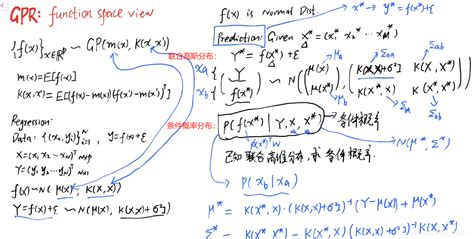 GPR: function space view
{f(x)}x∈ℝᵖ ∼ GP(m(x), K(x,x'))
m(x)=E[f(x)]
K(x,x')=E[(f(x)-m(x))(f(x')-m(x'))ᵀ]
Regression:
Data: {(xᵢ,yᵢ)}ᵢ₌₁ᴺ, y=f(x)+ε
X=(x₁,x₂⋯xN)ᵀN×p
Y=(y₁,y₂⋯yN)ᵀN×1
f(x)∼N(μ(x), K(x,x))
Y=f(x)+ε ∼N(μ(x), K(x,x)+σ²I)
f(x) is Normal Dist.
x* → y*=f(x*)+ε
Prediction: Given X*=(x₁* x₂*⋯xM*)
联合高斯分布:
Y*=f(X*)+ε
xa
xb
(Y f(X*)) ∼ N((μ(X) μ(X*)), (K(X,X)+σ²I K(X,X*) K(X*,X) K(X*,X*)))
μa
Σaa
Σab
μb
Σba
Σbb
条件概率分布:
P(f(X*)|Y,X,X*) → 条件概率
N(μ*,Σ*)
已知联合高维分布,求条件概率
P(xb|xa)
μ*=K(X*,X)·(K(X,X)+σ²I)⁻¹(Y-μ(X))+μ(X*)
Σ*=K(X*,X*)-K(X*,X)(K(X,X)+σ²I)⁻¹K(X,X*)